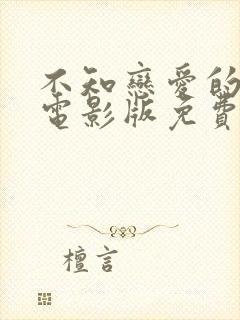 不知戀愛的
電影版免費
檀言